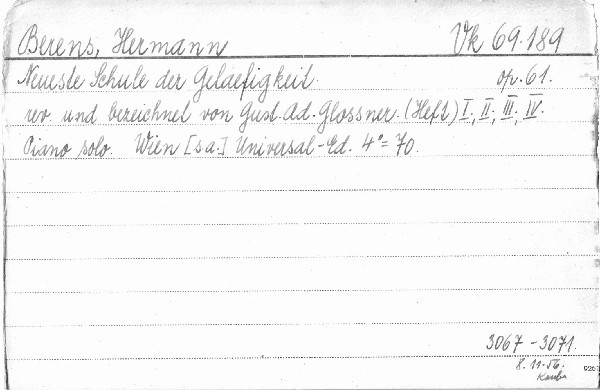 Berens, Hermann Vk 69.189
Neueste Schule der Gelaefigkeit. op. 61.
rev. und bezeichnet von Gust. Ad. Glossner. (Heft) I., II., III., IV.
Piano solo. Wien [s.a.] Universal-Ed. 4°= 70.
3067-3071.
8.11.56.